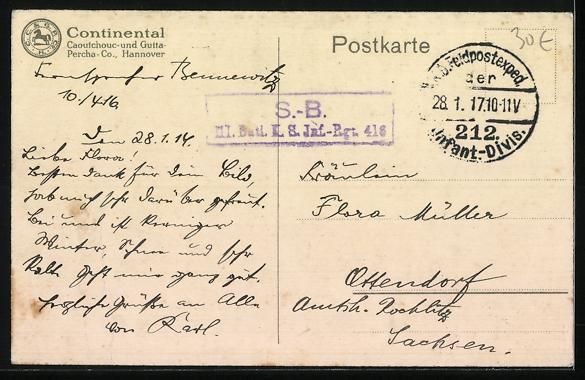 Continental
Caoutchouc- und Gutta-
Percha-Co., Hannover
Postkarte
30 €
K. D. Feldpostexped.
der
28.1.17.10-11V
212.
Infant.-Divis.
S.-B.
III. Batl. K. S. Inf.-Rgt. 416
Bennewitz
10/416
Den 28.1.17.
Liebe Flora!
Besten Dank für Dein Bild,
hab mich sehr darüber gefreut.
Bei uns ist strenger
Winter, Schnee und sehr
Kalt. Geht mir ganz gut.
Herzliche Grüße an Alle
von Karl.
Fräulein
Flora Müller
Ottendorf
Amtsh. Rochlitz
Sachsen.